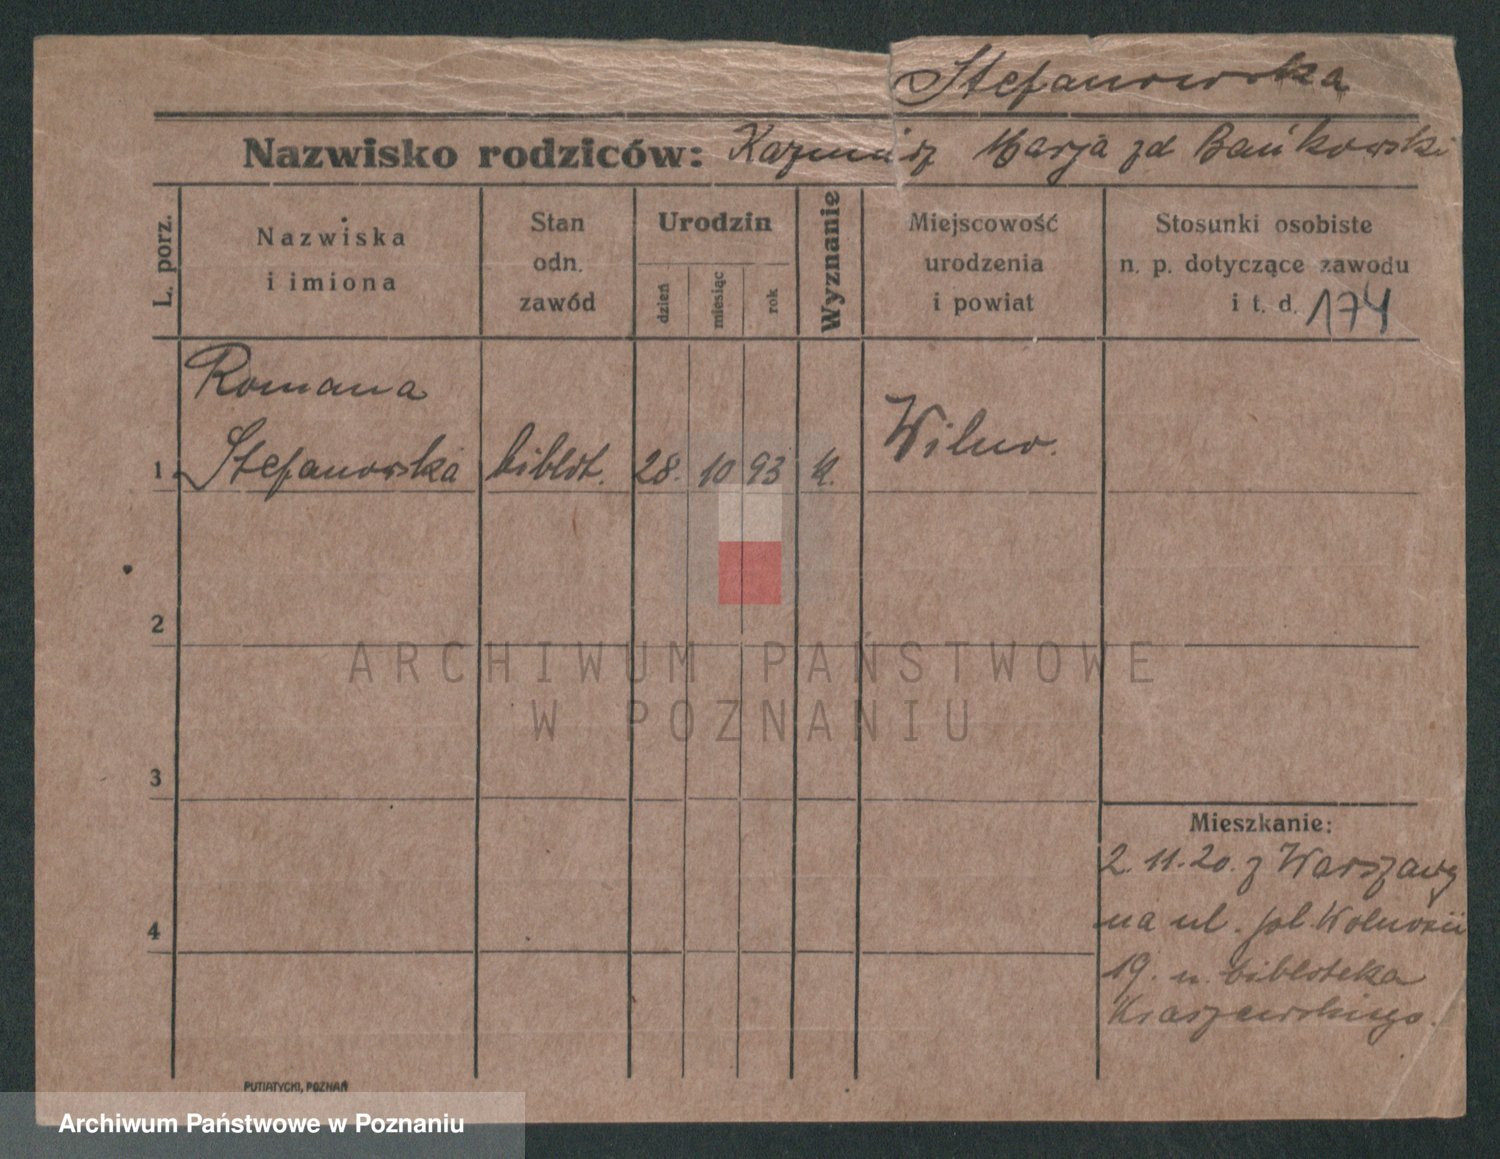 Stefanowska
Nazwisko rodziców: Kazmierz Marja zd Bańkowski
L. porz.
Nazwiska
i imiona
Stan
odn.
zawód
Urodzin
dzień
miesiąc
rok
Wyznanie
Miejscowość
urodzenia
i powiat
Stosunki osobiste
n. p. dotyczące zawodu
i t. d. 174
Romana
1 Stefanowska bibljot. 28. 10 93 k. Wilno.
2
ARCHIWUM PAŃSTWOWE
W POZNANIU
3
Mieszkanie:
2. 11. 20. z Warszawy
na ul. pl. Wolności
4
19. u. bibljoteka
Kraszewskiego.
PUTIATYCKI, POZNAŃ
Archiwum Państwowe w Poznaniu